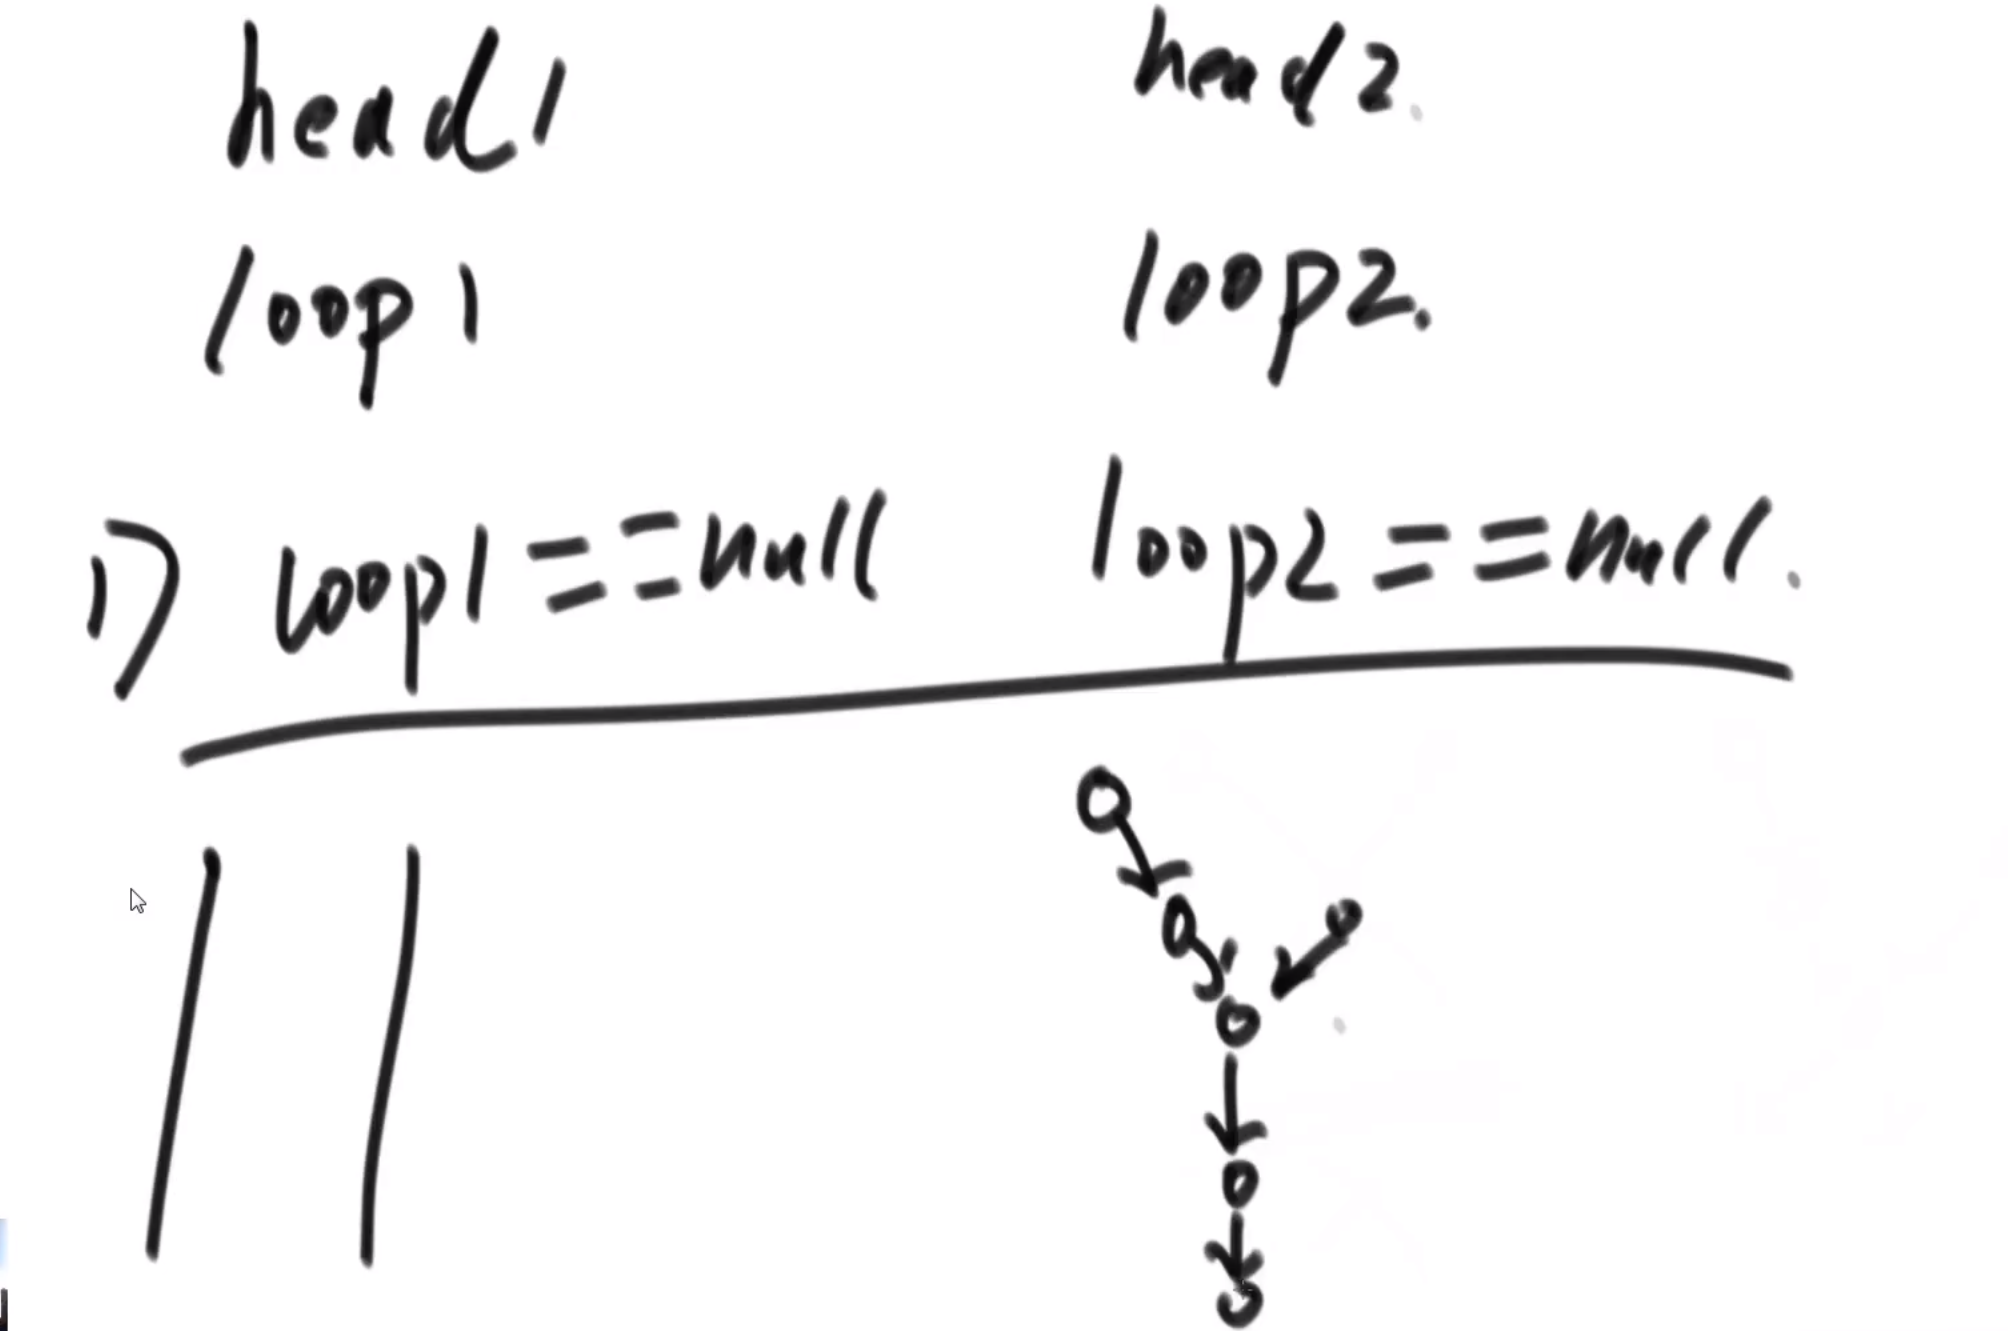 head1 head2.
loop1 loop2.
1) loop1 == null loop2 == null.